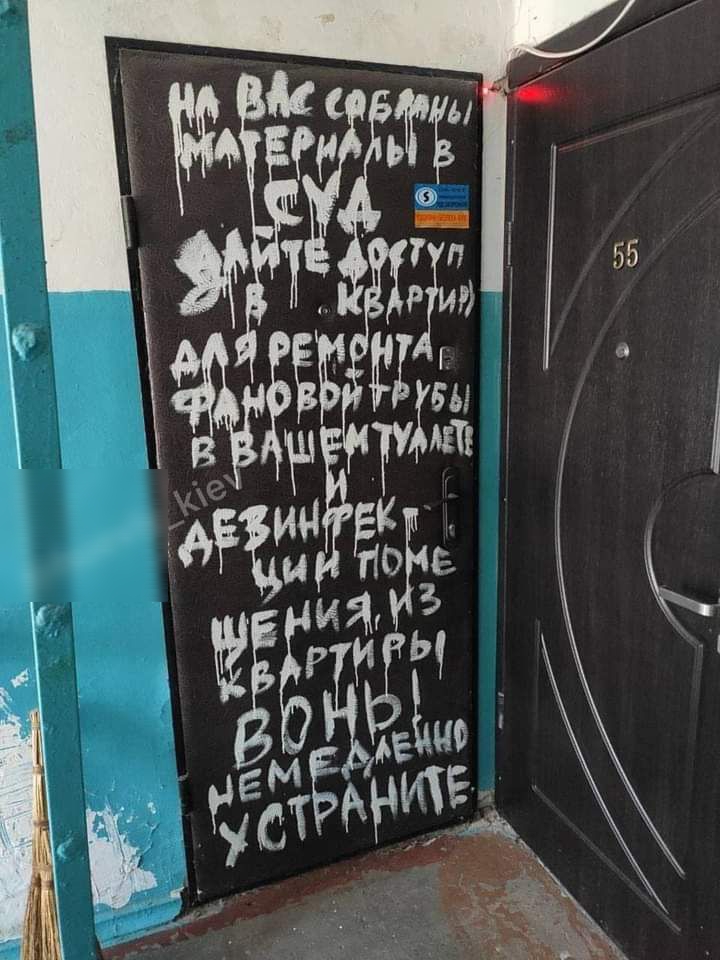 НА ВАС СОБРАНЫ
МАТЕРИАЛЫ В
СУД
ДАЙТЕ ДОСТУП
В КВАРТИРУ
ДЛЯ РЕМОНТА
ФАНОВОЙ ТРУБЫ
В ВАШЕМ ТУАЛЕТЕ
И
ДЕЗИНФЕК-
ЦИИ ПОМЕ
ЩЕНИЯ, ИЗ
КВАРТИРЫ
ВОНЬ!
НЕМЕДЛЕННО
УСТРАНИТЕ
55
_kiev